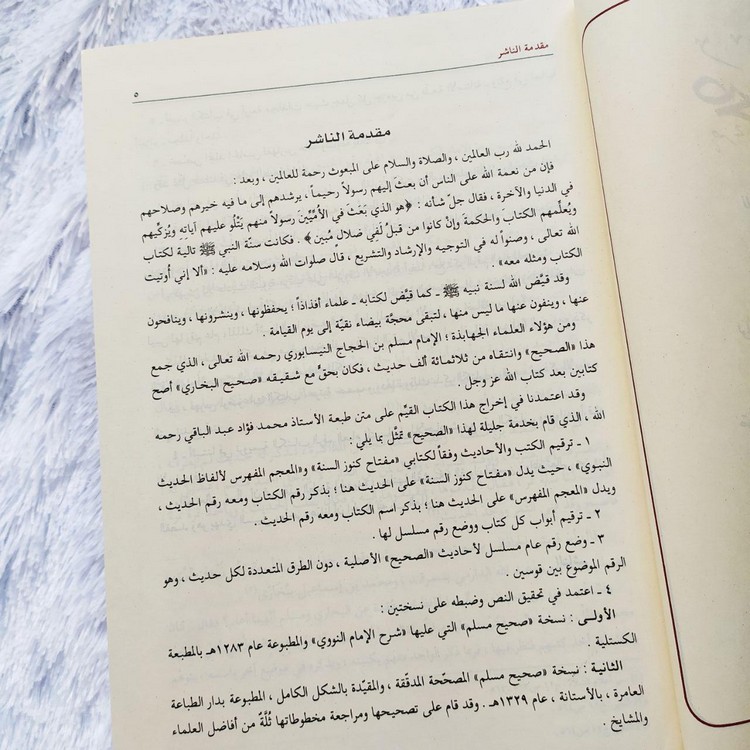 مقدمة الناشر
٥
مقدمة الناشر
الحمد لله رب العالمين ، والصلاة والسلام على المبعوث رحمة للعالمين ، وبعد :
فإن من نعمة الله على الناس أن بعثَ إليهم رسولاً رحيماً ، يرشدهم إلى ما فيه خيرهم وصلاحهم
في الدنيا والآخرة ، فقال جلّ شأنه : ﴿هو الذي بَعَثَ في الأُمِّيِّينَ رسولاً منهم يَتْلُو عليهم آياته ويُزكِّيهم
ويُعلِّمهم الكتابَ والحكمةَ وإنْ كانوا من قبلُ لَفِي ضلالٍ مُبين﴾ . فكانت سنّة النبي ﷺ تالية لكتاب
الله تعالى ، وصنواً له في التوجيه والإرشاد والتشريع ، قال صلوات الله وسلامه عليه : «ألا إني أُوتيت
الكتاب ومثله معه» .
وقد قيَّض الله لسنة نبيه ﷺ ـ كما قيَّض لكتابه ـ علماء أفذاذاً ؛ يحفظونها ، وينشرونها ، وينافحون
عنها ، وينفون عنها ما ليس منها ، لتبقى محجَّة بيضاء نقيّة إلى يوم القيامة .
ومن هؤلاء العلماء الجهابذة ؛ الإمام مسلم بن الحجاج النيسابوري رحمه الله تعالى ، الذي جمع
هذا «الصحيح» وانتقاه من ثلاثمائة ألف حديث ، فكان بحقٍّ مع شقيقه «صحيح البخاري» أصح
كتابين بعد كتاب الله عز وجل .
وقد اعتمدنا في إخراج هذا الكتاب القيِّم على متن طبعة الأستاذ محمد فؤاد عبد الباقي رحمه
الله ، الذي قام بخدمة جليلة لهذا «الصحيح» تمثّل بما يلي :
١ ـ ترقيم الكتب والأحاديث وفقاً لكتابي «مفتاح كنوز السنة» و«المعجم المفهرس لألفاظ الحديث
النبوي» ، حيث يدل «مفتاح كنوز السنة» على الحديث هنا ؛ بذكر رقم الكتاب ومعه رقم الحديث ،
ويدل «المعجم المفهرس» على الحديث هنا ؛ بذكر اسم الكتاب ومعه رقم الحديث .
٢ ـ ترقيم أبواب كل كتاب ووضع رقم مسلسل لها .
٣ ـ وضع رقم عام مسلسل لأحاديث «الصحيح» الأصلية ، دون الطرق المتعددة لكل حديث ، وهو
الرقم الموضوع بين قوسين .
٤ ـ اعتمد في تحقيق النص وضبطه على نسختين :
الأولى : نسخة «صحيح مسلم» التي عليها «شرح الإمام النووي» والمطبوعة عام ١٢٨٣هـ بالمطبعة
الكستلية .
الثانية : نسخة «صحيح مسلم» المصحّحة المدقّقة ، والمقيّدة بالشكل الكامل ، المطبوعة بدار الطباعة
العامرة ، بالأستانة ، عام ١٣٢٩هـ . وقد قام على تصحيحها ومراجعة مخطوطاتها ثُلَّةٌ من أفاضل العلماء
والمشايخ .